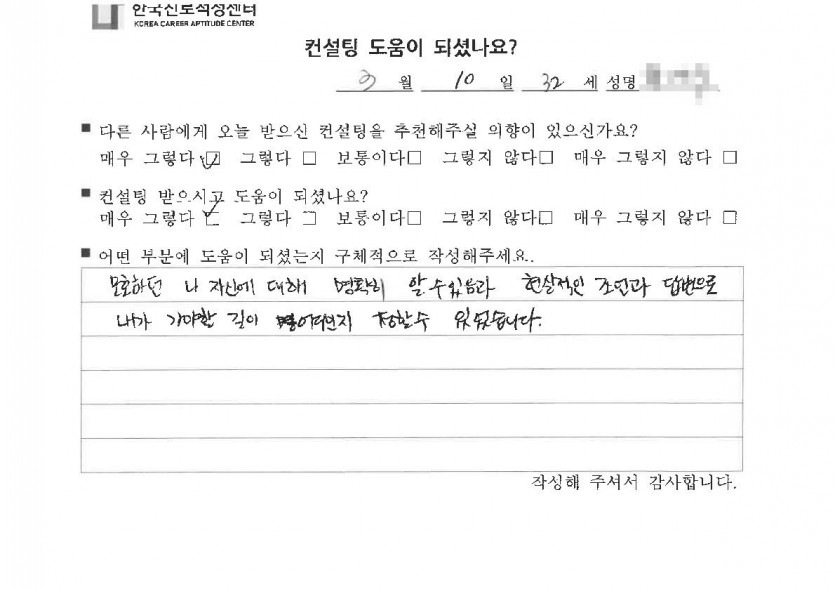 한국진로적성센터
KOREA CAREER APTITUDE CENTER
컨설팅 도움이 되셨나요?
3 월 10 일 32 세 성명
■ 다른 사람에게 오늘 받으신 컨설팅을 추천해주실 의향이 있으신가요?
매우 그렇다 ☑ 그렇다 □ 보통이다□ 그렇지 않다□ 매우 그렇지 않다 □
■ 컨설팅 받으시고 도움이 되셨나요?
매우 그렇다 ☑ 그렇다 □ 보통이다□ 그렇지 않다□ 매우 그렇지 않다 □
■ 어떤 부분에 도움이 되셨는지 구체적으로 작성해주세요..
모호하던 나 자신에 대해 명확히 알 수 있음과 현실적인 조언과 답변으로
내가 가야할 길이 정할수 있었습니다.
작성해 주셔서 감사합니다.